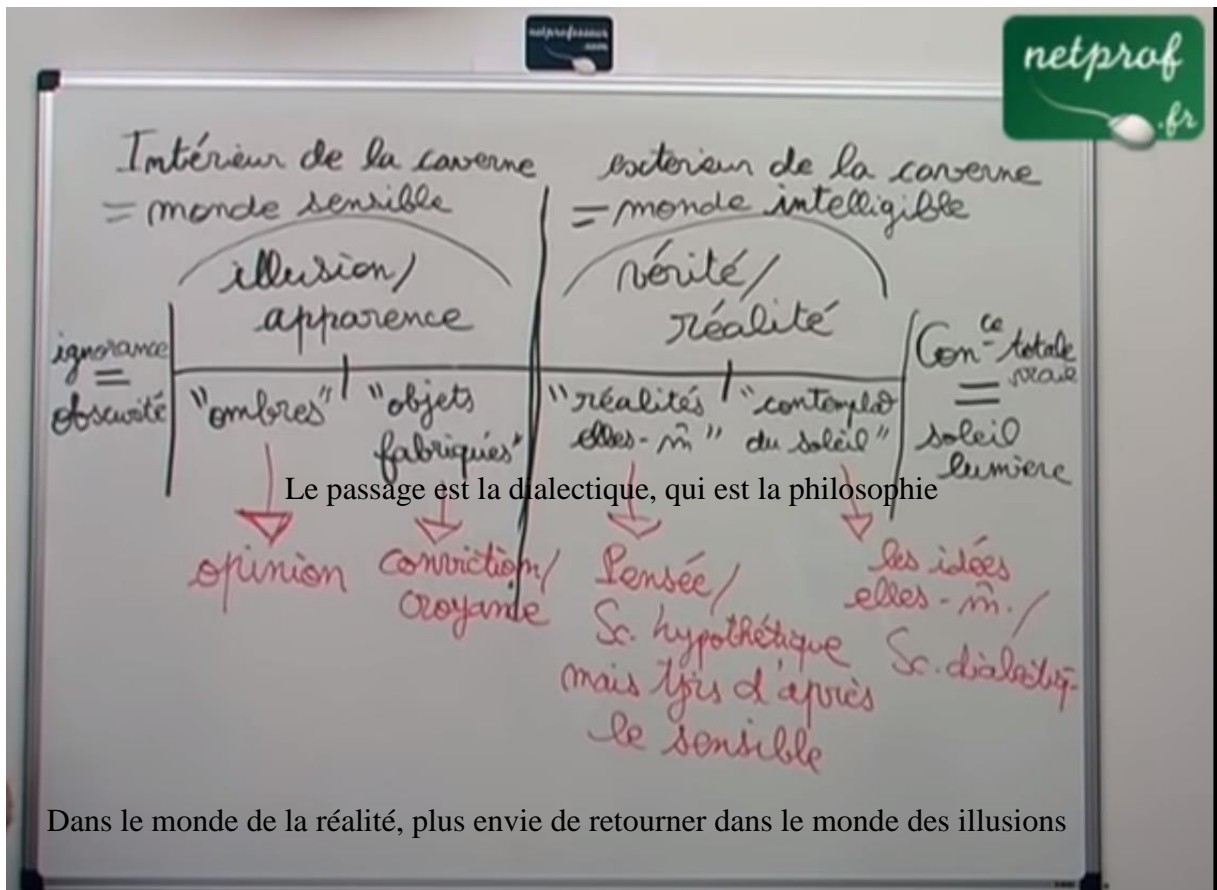 netprofesseur
.com
netprof
.fr
Intérieur de la caverne
= monde sensible
illusion/
apparence
exterieur de la caverne
= monde intelligible
vérité/
réalité
ignorance
=
obscurité
"ombres"
"objets
fabriqués"
"réalités
elles-m̂"
"contemplat°
du soleil"
Con^ce totale
vraie
=
soleil
lumière
Le passage est la dialectique, qui est la philosophie
opinion
conviction/
croyance
Pensée/
Sc. hypothétique
mais tjrs d'après
le sensible
les idées
elles-m̂./
Sc. dialectiq-
Dans le monde de la réalité, plus envie de retourner dans le monde des illusions